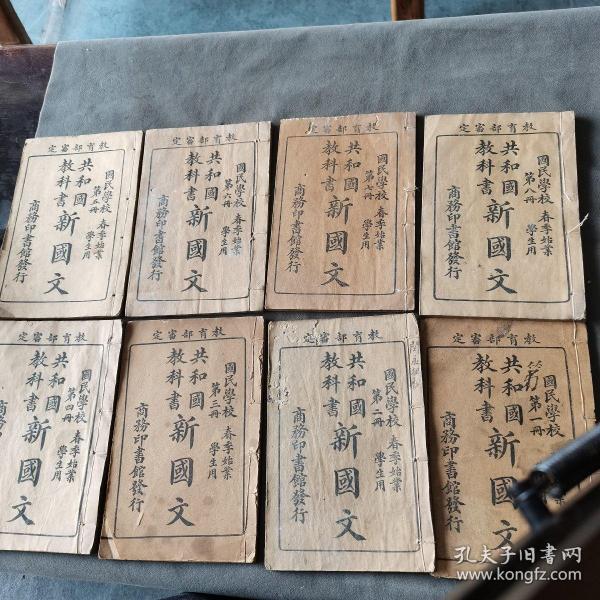 教育部審定
國民學校 春季始業
第五冊 學生用
共和國
教科書
新國文
商務印書館發行
教育部審定
國民學校 春季始業
第六冊 學生用
共和國
教科書
新國文
商務印書館發行
教育部審定
國民學校 春季始業
第七冊 學生用
共和國
教科書
新國文
商務印書館發行
教育部審定
國民學校 春季始業
第八冊 學生用
共和國
教科書
新國文
商務印書館發行
教育部審定
國民學校 春季始業
第四冊 學生用
共和國
教科書
新國文
商務印
教育部審定
國民學校 春季始業
第三冊 學生用
共和國
教科書
新國文
商務印書館發行
教育部審定
國民學校 春季始業
第二冊 學生用
共和國
教科書
新國文
商務印書館發行
教育部審定
國民學校 業
第一冊
共和國
教科書
新國文
商務印書館發行
孔夫子旧書网
www.kongfz.com